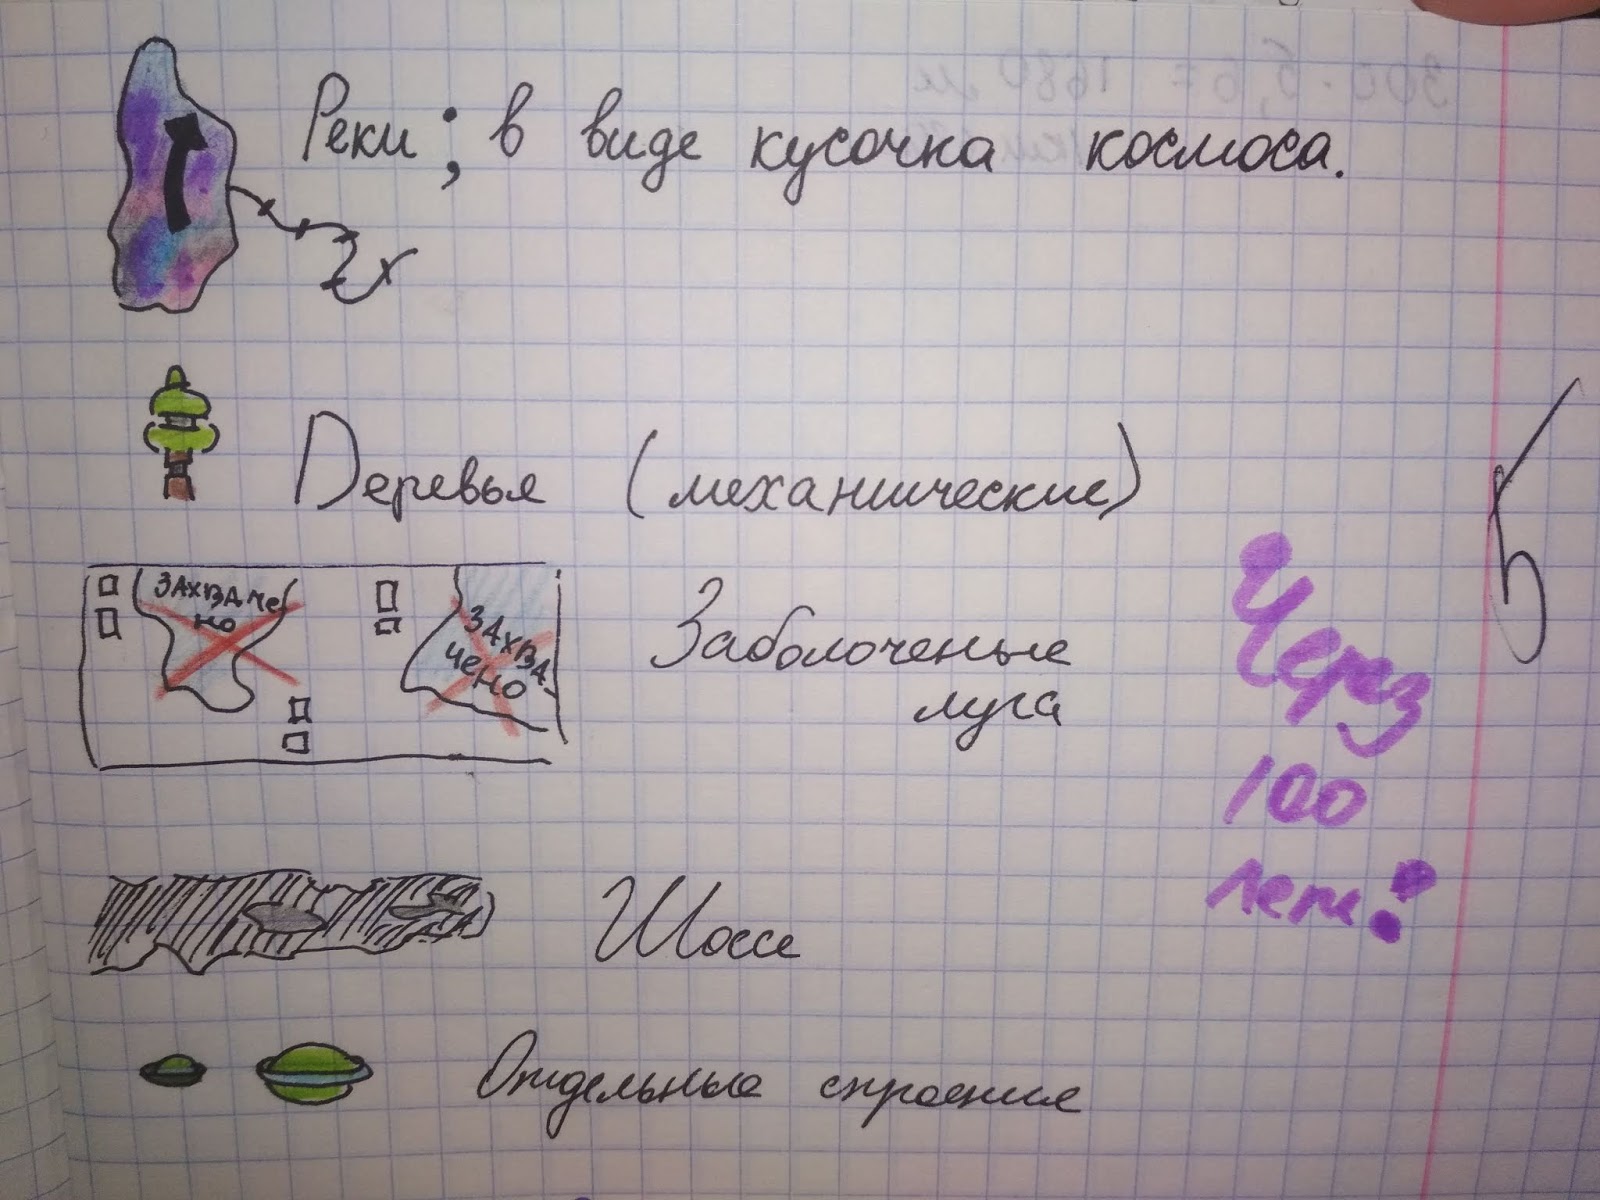 Реки; в виде кусочка космоса.
Деревья (механические)
ЗАХВАЧЕ
НО
ЗАХВА-
ЧЕНО
Заболоченые
луга
Через
100
лет:
Шоссе
Отдельные строения